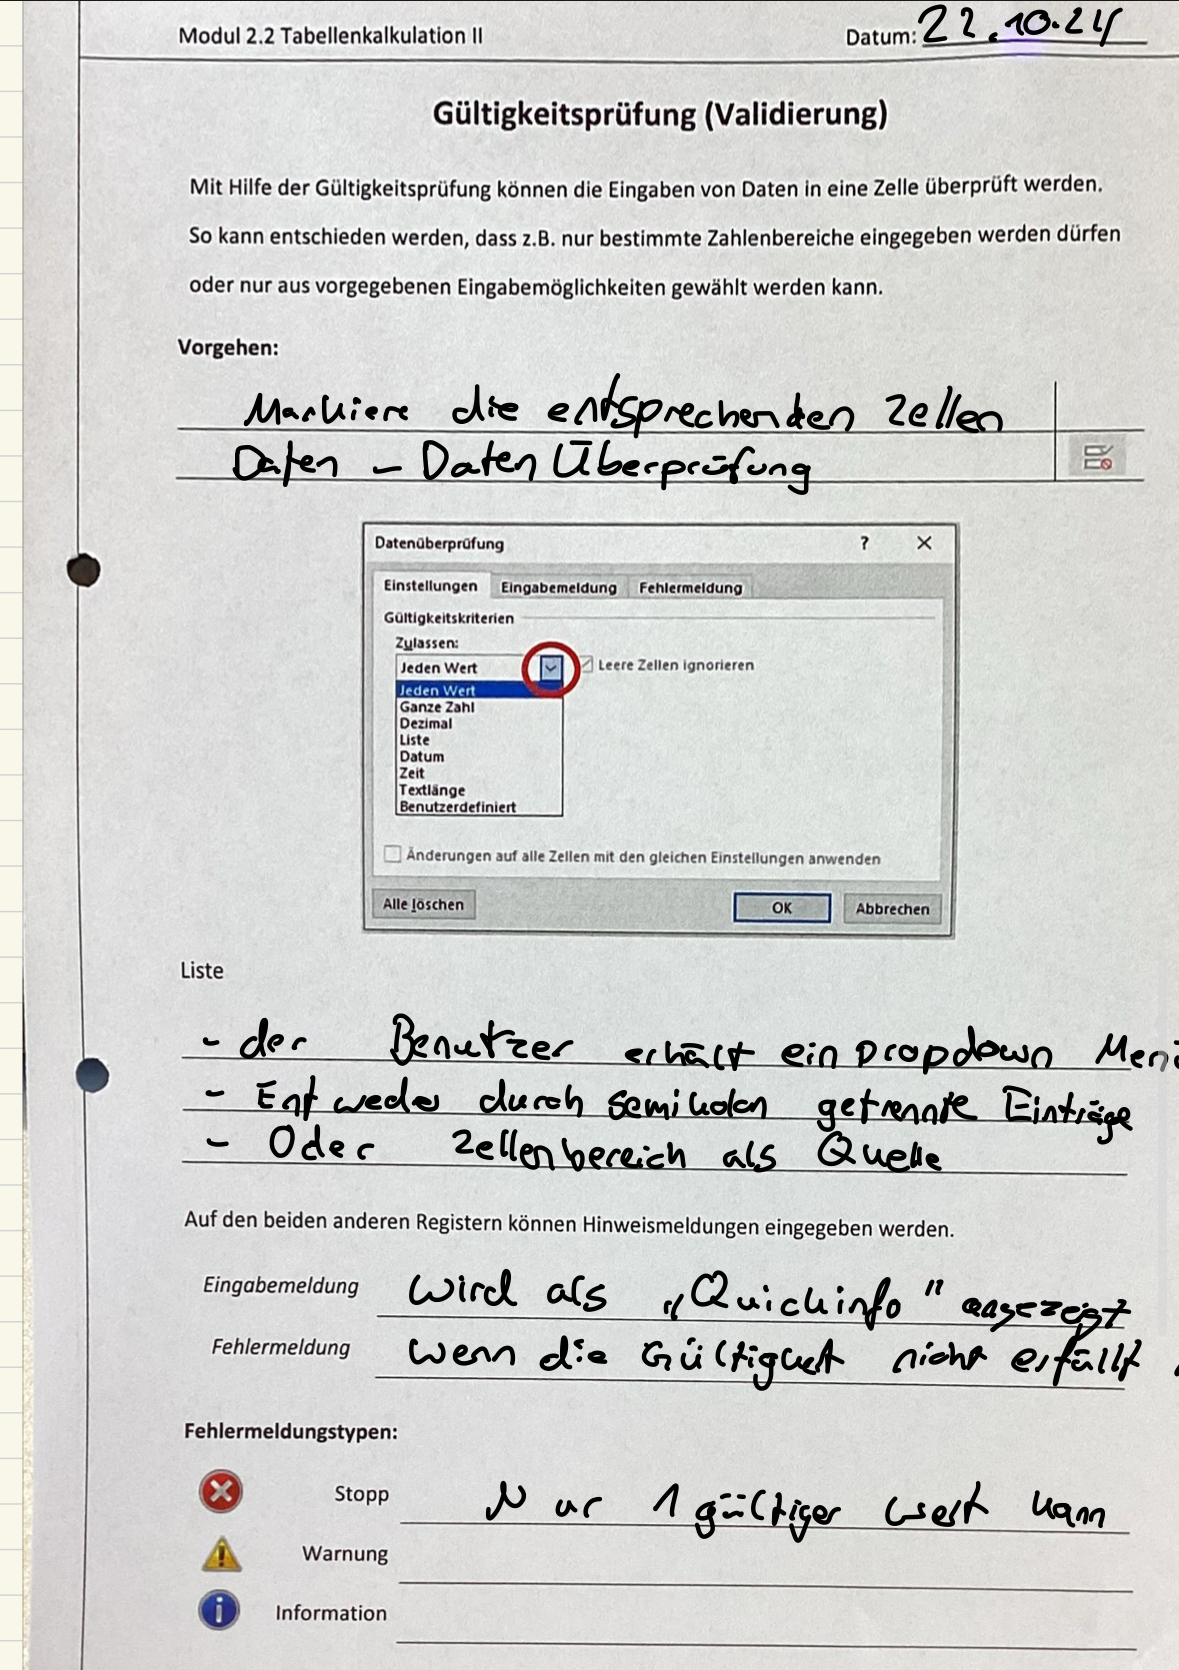 Modul 2.2 Tabellenkalkulation II
Datum: 22.10.24
Gültigkeitsprüfung (Validierung)
Mit Hilfe der Gültigkeitsprüfung können die Eingaben von Daten in eine Zelle überprüft werden.
So kann entschieden werden, dass z.B. nur bestimmte Zahlenbereiche eingegeben werden dürfen
oder nur aus vorgegebenen Eingabemöglichkeiten gewählt werden kann.
Vorgehen:
Markiere die entsprechenden Zellen
Daten – Daten Überprüfung
Datenüberprüfung ? ×
Einstellungen Eingabemeldung Fehlermeldung
Gültigkeitskriterien
Zulassen:
Jeden Wert Leere Zellen ignorieren
Jeden Wert
Ganze Zahl
Dezimal
Liste
Datum
Zeit
Textlänge
Benutzerdefiniert
Änderungen auf alle Zellen mit den gleichen Einstellungen anwenden
Alle löschen OK Abbrechen
Liste
- der Benutzer erhält ein Dropdown Menü
- Entweder durch Semikolon getrennte Einträge
- Oder Zellenbereich als Quelle
Auf den beiden anderen Registern können Hinweismeldungen eingegeben werden.
Eingabemeldung Wird als „Quickinfo" angezeigt
Fehlermeldung Wenn die Gültigkeit nicht erfüllt
Fehlermeldungstypen:
Stopp Nur 1 gültiger Wert kann
Warnung
Information